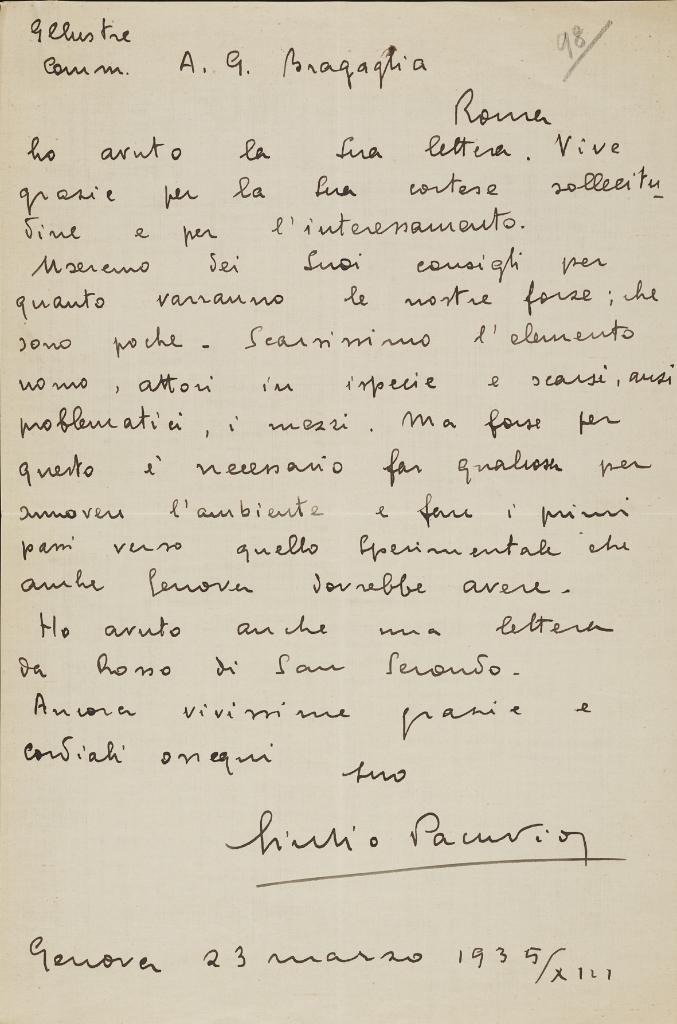 Illustre
Comm. A. G. Bragaglia
98
Roma
ho avuto la Sua lettera. Vive
grazie per la Sua cortese sollecitu_
dine e per l'interessamento.
Useremo dei Suoi consigli per
quanto varranno le nostre forze; che
sono poche - Scarsissimo l'elemento
uomo, attori in ispecie e scarsi, anzi
problematici, i mezzi. Ma forse per
questo è necessario far qualcosa per
smuovere l'ambiente e fare i primi
passi verso quello Sperimentale che
anche Genova dovrebbe avere -
Ho avuto anche una lettera
da Rosso di San Secondo -
Ancora vivissime grazie e
cordiali ossequi
suo
Giulio Pacuvio
Genova 23 marzo 1935/XIII